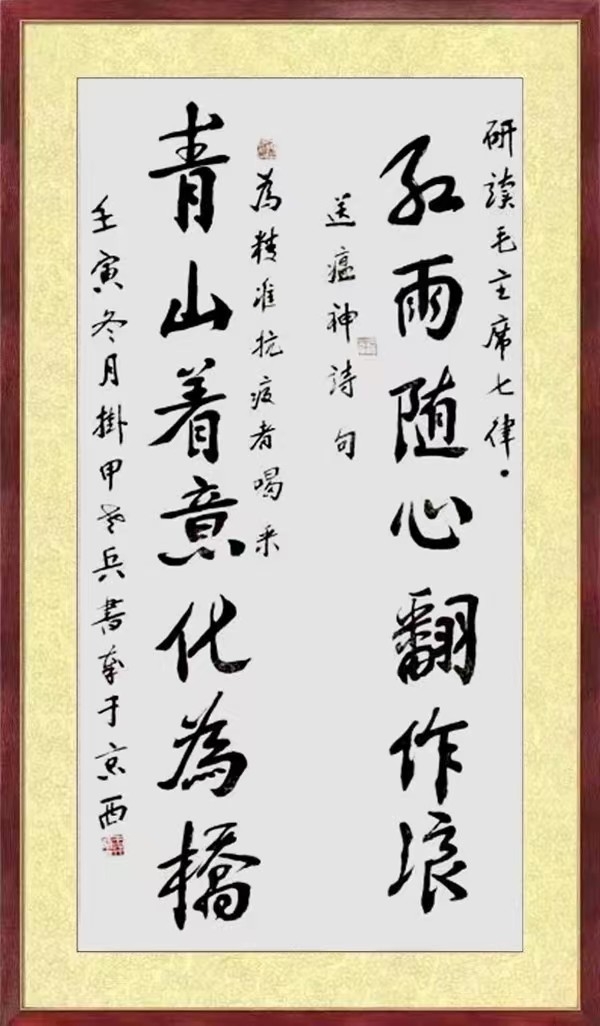 研读毛主席七律·
红雨随心翻作浪
送瘟神诗句
为精准抗疫者喝采
青山着意化為橋
壬寅冬月掛甲老兵書奉于京西